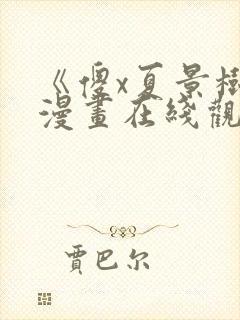 《傻x夏景樹
漫畫在綫觀
賈巴尔